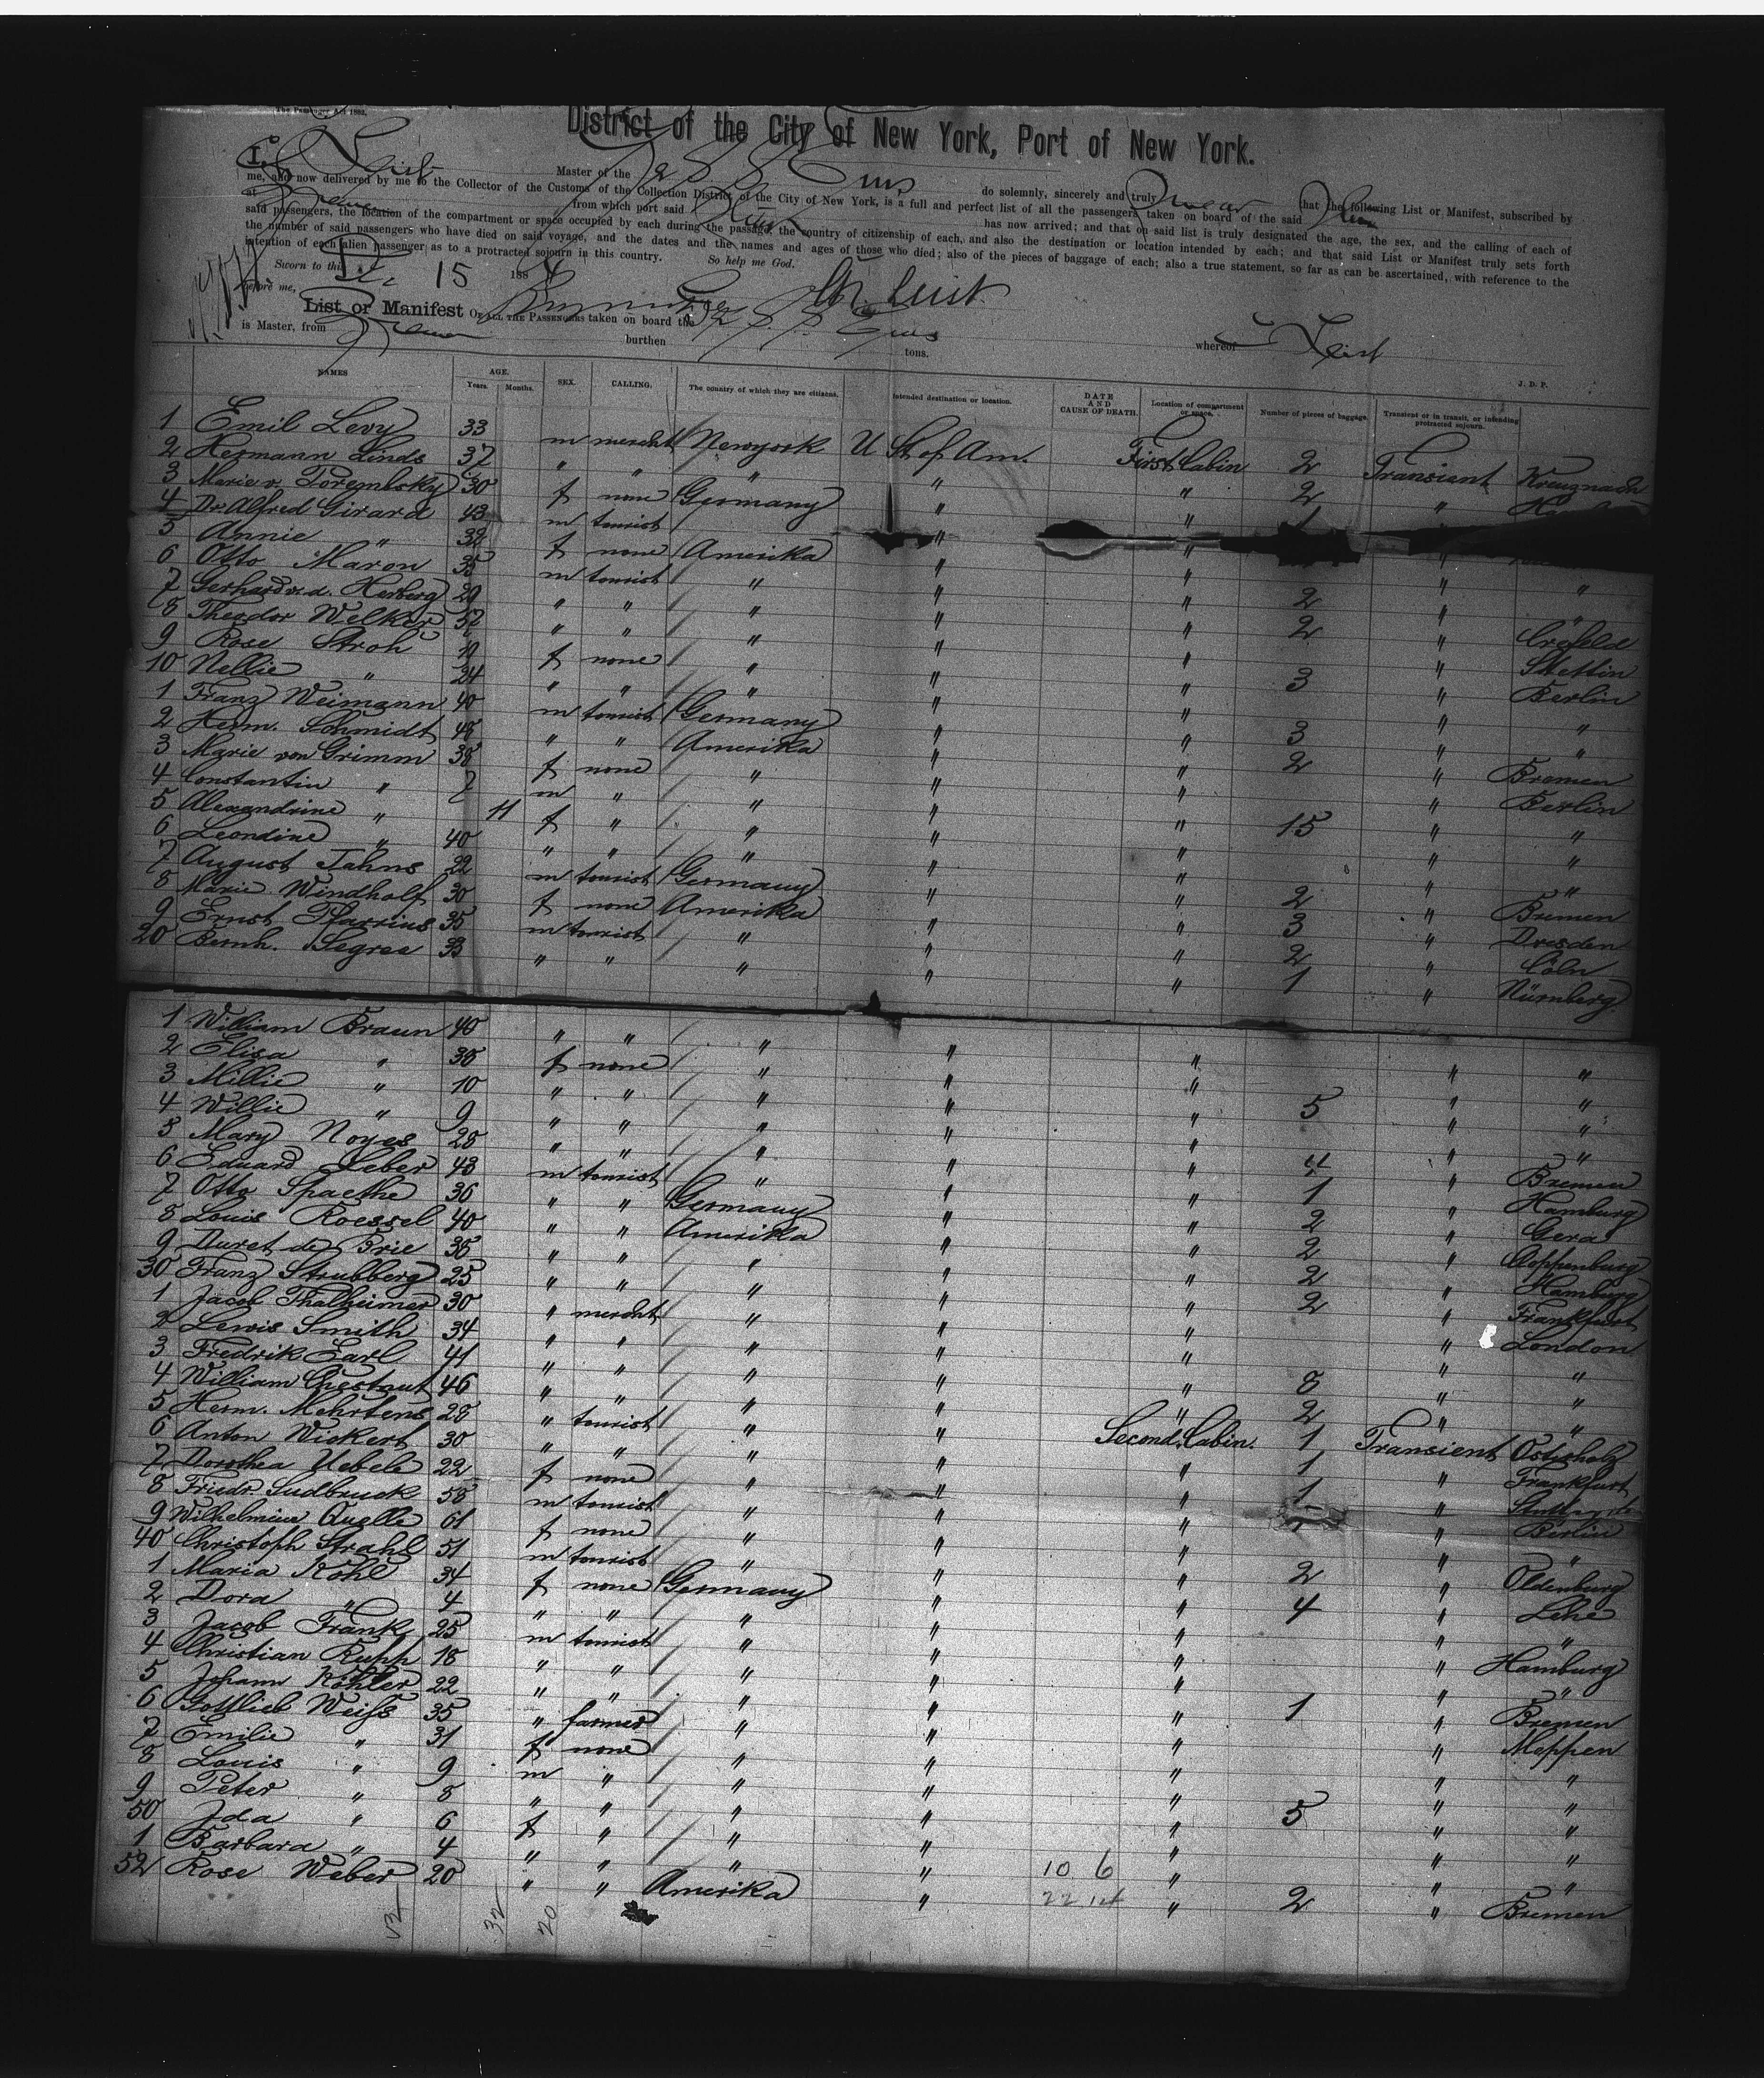 The Passenger Act 1882.
District of the City of New York, Port of New York.
I, Leist Master of the S. S. Ems do solemnly, sincerely and truly swear that the following List or Manifest, subscribed by
me, and now delivered by me to the Collector of the Customs of the Collection District of the City of New York, is a full and perfect list of all the passengers taken on board of the said
at Bremen from which port said has now arrived; and that on said list is truly designated the age, the sex, and the calling of each of
said passengers, the location of the compartment or space occupied by each during the passage, the country of citizenship of each, and also the destination or location intended by each; and that said List or Manifest truly sets forth
the number of said passengers who have died on said voyage, and the dates and the names and ages of those who died; also of the pieces of baggage of each; also a true statement, so far as can be ascertained, with reference to the
intention of each alien passenger as to a protracted sojourn in this country. So help me God.
Sworn to this Dec 15 1884
before me, Chr. Leist
List or Manifest OF ALL THE PASSENGERS taken on board the S. S. Ems whereof Leist
is Master, from Bremen burthen tons.
J. D. P.
NAMES AGE. Years. Months. SEX. CALLING. The country of which they are citizens. Intended destination or location. DATE AND CAUSE OF DEATH. Location of compartment or space. Number of pieces of baggage. Transient or in transit, or intending protracted sojourn.
1 Emil Levy 33 m mercht Newyork U St of Am. First Cabin 2 Transient Kreuznach
2 Hermann Linds 37 " " " " " 2 "
3 Marie v. Torembsky 30 f none Germany " " 1
4 Dr. Alfred Girard 43 m tourist " "
5 Annie " 32 f none Amerika " " "
6 Otto Maron 35 m tourist " " " 2 " "
7 Gerhard v. d. Herberg 29 " " " " " 2 " Crefeld
8 Theodor Welker 52 " " " " " " Stettin
9 Rose Stroh 19 f none " " " 3 " Berlin
10 Nellie " 24 " " " " " " "
1 Franz Weimann 40 m tourist Germany " " 3 " "
2 Herm. Schmidt 48 " " Amerika " " 2 " Bremen
3 Marie von Grimm 38 f none " " " " Berlin
4 Constantin " 7 m " " " " 15 " "
5 Alexandrine " 11 f " " " " " "
6 Leondine " 40 " " " " " " "
7 August Jahns 22 m tourist Germany " " 2 " Bremen
8 Marie Windholf 30 f none Amerika " " 3 " Dresden
9 Ernst 35 m tourist " " " 2 " Cöln
20 Bernh. Segree 33 " " " " " 1 " Nürnberg
1 William Braun 40 " " " " " " "
2 Elisa " 38 f none " " " " "
3 Millie " 10 " " " " " 5 " "
4 Willie " 9 " " " " " " "
5 Mary Noyes 28 " " " " " " " Bremen
6 Eduard Leber 43 m tourist " " " 1 " Hamburg
7 Otto Spaethe 36 " " Germany " " 2 " Gera
8 Louis Roessel 40 " " Amerika " " 2 " Cloppenburg
9 Duret de Brie 38 " " " " " 2 " Hamburg
30 Franz Strubberg 25 " " " " " 2 " Frankfurt
1 Jacob Thalheimer 30 " mercht " " " " London
2 Lewis Smith 34 " " " " " " "
3 Fredrik Earl 41 " " " " " 8 " "
4 William Chestnut 46 " " " " " 2 " "
5 Herm. Mehrtens 28 " tourist " " Second Cabin. 1 Transient Osterholz
6 Anton Wickert 30 " " " " " 1 " Frankfurt
7 Dorothea Uebele 22 f none " " " 1 "
8 Friedr. Sudbruck 58 m tourist " " " " Berlin
9 Wilhelmine Quelle 61 f none " " " " "
40 Christoph Strahl 51 m tourist " " " 2 " Oldenburg
1 Maria Kohl 34 f none Germany " " 4 " Lehe
2 Dora " 4 " " " " " " "
3 Jacob Frank 25 m tourist " " " " Hamburg
4 Christian Rupp 18 " " " " " " "
5 Johann Köhler 22 " " " " " 1 " Bremen
6 Gottlieb Weiss 35 " farmer " " " " Meppen
7 Emilie " 31 f none " " " " "
8 Louis " 9 m " " " " " "
9 Peter " 8 " " " " " 5 " "
50 Ida " 6 f " " " " " "
1 Barbara " 4 " " " " 10 6 " " "
52 Rose Weber 20 " " Amerika " 22 14 " 2 " Bremen
52 32 20